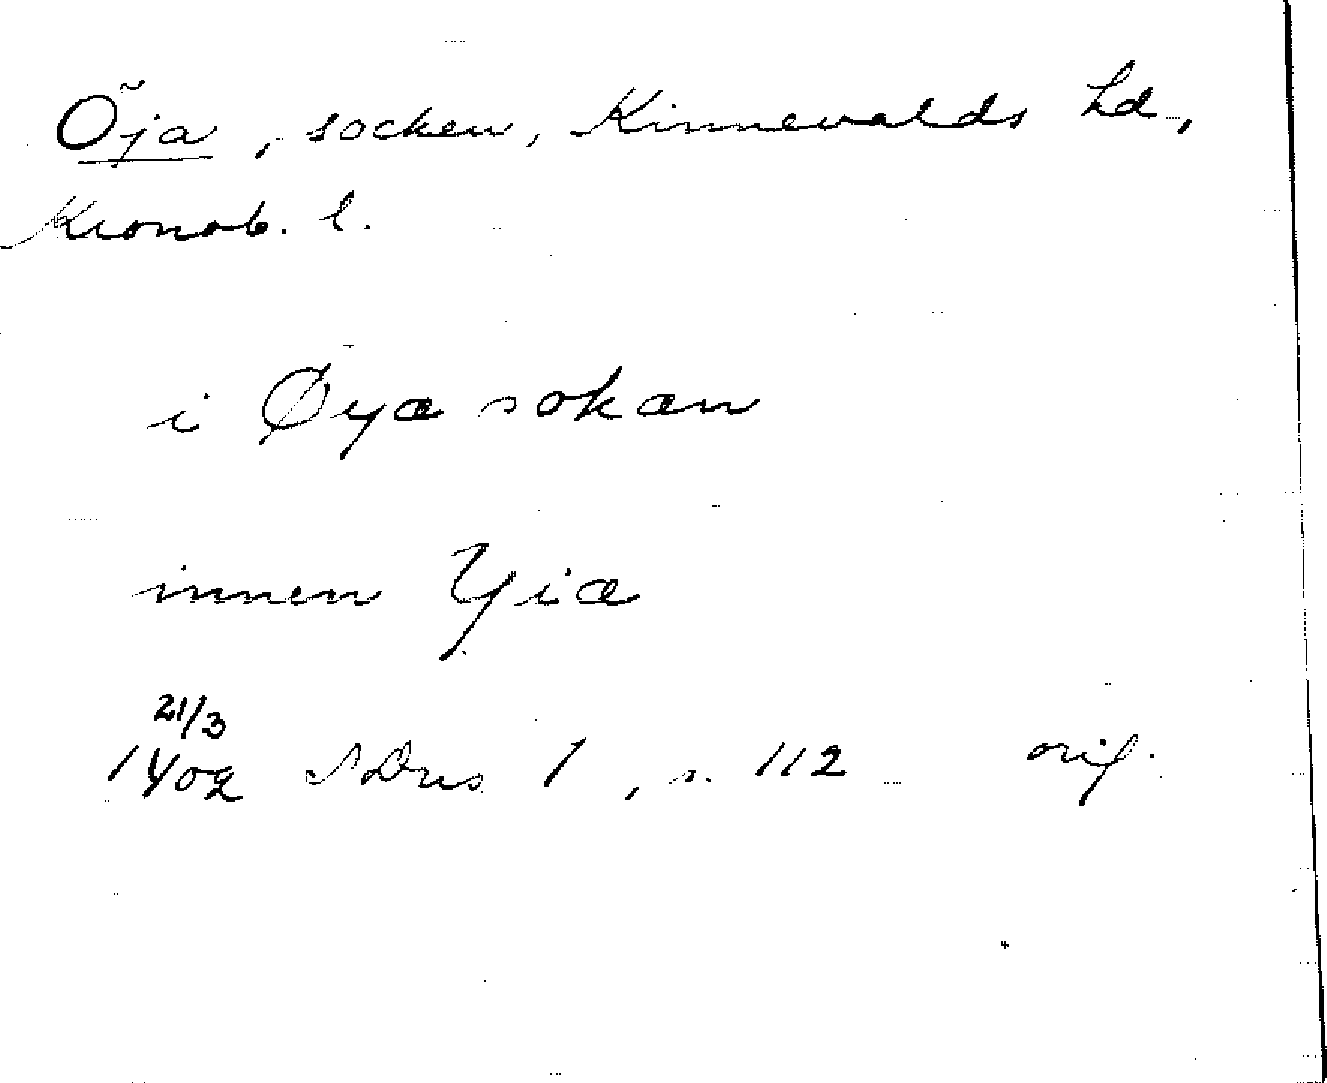 Öja, socken, Kinnevalds hd,
Kronob. l.
i Øya sokan
innen Yia
21/3
1402 SDns 1, s. 112 orig.